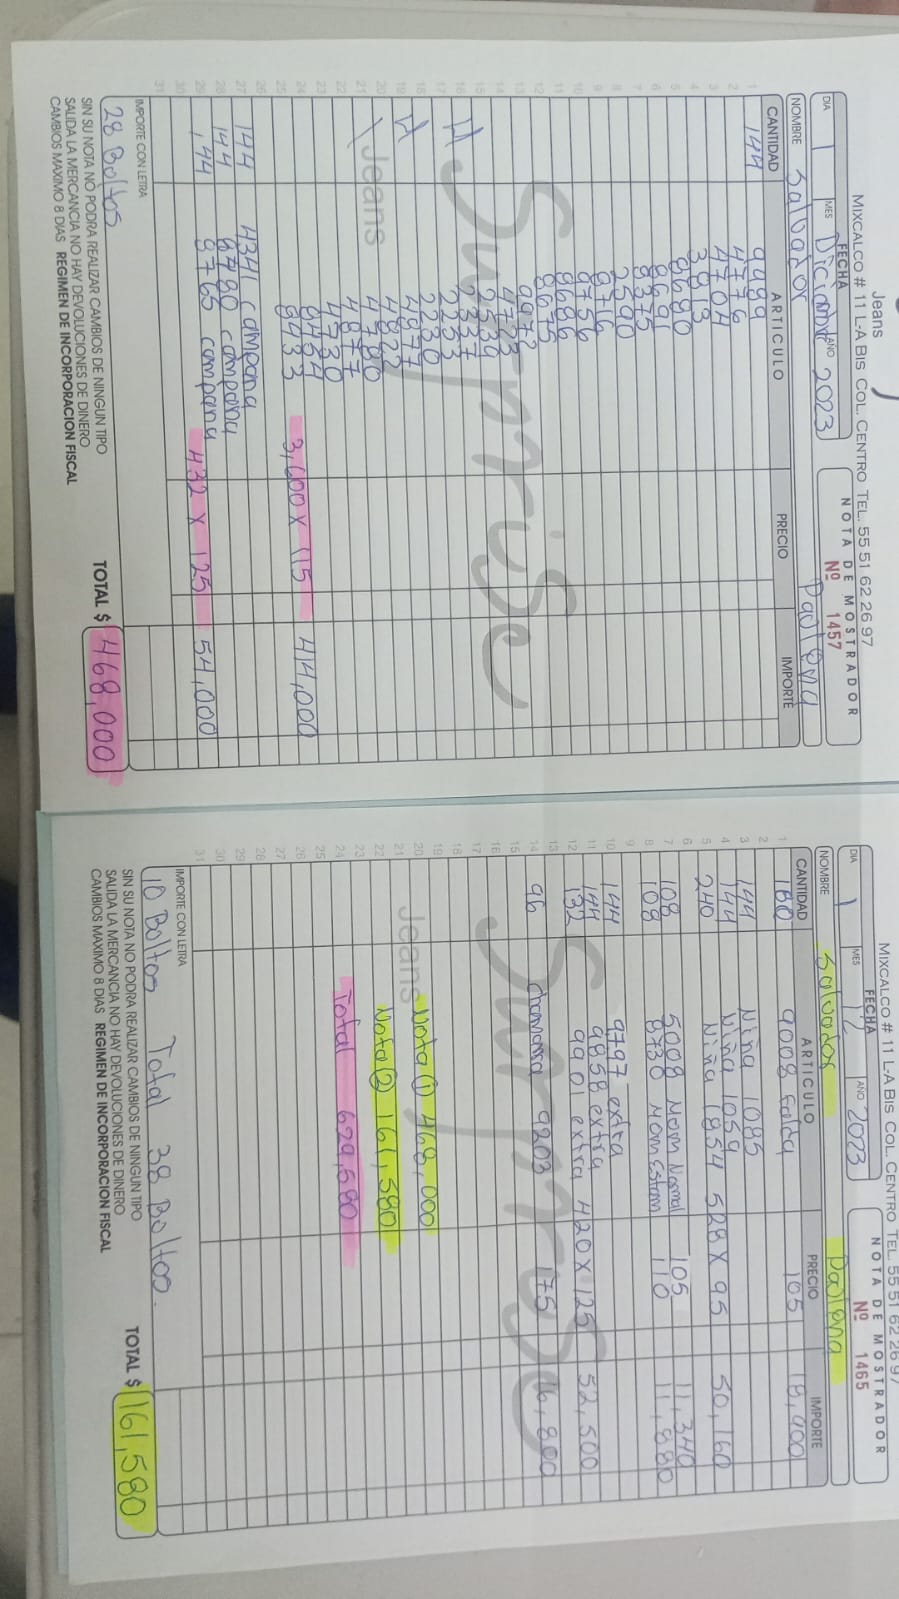 Jeans
MIXCALCO # 11 L-A BIS COL. CENTRO TEL. 55 51 62 26 97
FECHA
NOTA DE MOSTRADOR
DIA 1 MES Diciembre AÑO 2023
Nº 1457
NOMBRE Salvador Paloma
CANTIDAD ARTICULO PRECIO IMPORTE
1 144 9989
2 4776
3 4704
4 3813
5 8680
6 8691
7 8375
8 2590
9 8716
10 9756
11 8686
12 8675
13 9972
14 4723
15
16
17 2223
18 2230
19 4977
20 4823
21 4780
22 4877
23 4730
24 8484
25 8483 3,600 x 115 414,000
26
27 144 4341 campana
28 144 8780 campana
29 144 8765 campana 432 x 125 54,000
30
31
Surprise
Jeans
IMPORTE CON LETRA
28 Boltos
TOTAL $ 468,000
SIN SU NOTA NO PODRA REALIZAR CAMBIOS DE NINGUN TIPO
SALIDA LA MERCANCIA NO HAY DEVOLUCIONES DE DINERO
CAMBIOS MAXIMO 8 DIAS REGIMEN DE INCORPORACION FISCAL
MIXCALCO # 11 L-A BIS COL. CENTRO TEL. 55 51 62 26 97
FECHA
NOTA DE MOSTRADOR
DIA 1 MES 12 AÑO 2023
Nº 1465
NOMBRE Salvador Paloma
CANTIDAD ARTICULO PRECIO IMPORTE
1 180 9008 Falda 105 18,900
2
3 144 Niña 1085
4 144 Niña 1059
5 240 Niña 1854 528 x 95 50,160
6
7 108 5008 Mom Normal 105 11,340
8 108 8730 Mom Estam 110 11,880
9
10 144 9797 extra
11 144 9858 extra
12 132 9901 extra 420 x 125 52,500
13
14 96 chamarra 9203 175 16,800
15
16
17
18
19
20 Nota ① 468,000
21
22 Nota ② 161,580
23
24 Total 629,580
25
26
27
28
29
30
31
Surprise
Jeans
IMPORTE CON LETRA
10 Boltos Total 38 Boltos.
TOTAL $ 161,580
SIN SU NOTA NO PODRA REALIZAR CAMBIOS DE NINGUN TIPO
SALIDA LA MERCANCIA NO HAY DEVOLUCIONES DE DINERO
CAMBIOS MAXIMO 8 DIAS REGIMEN DE INCORPORACION FISCAL